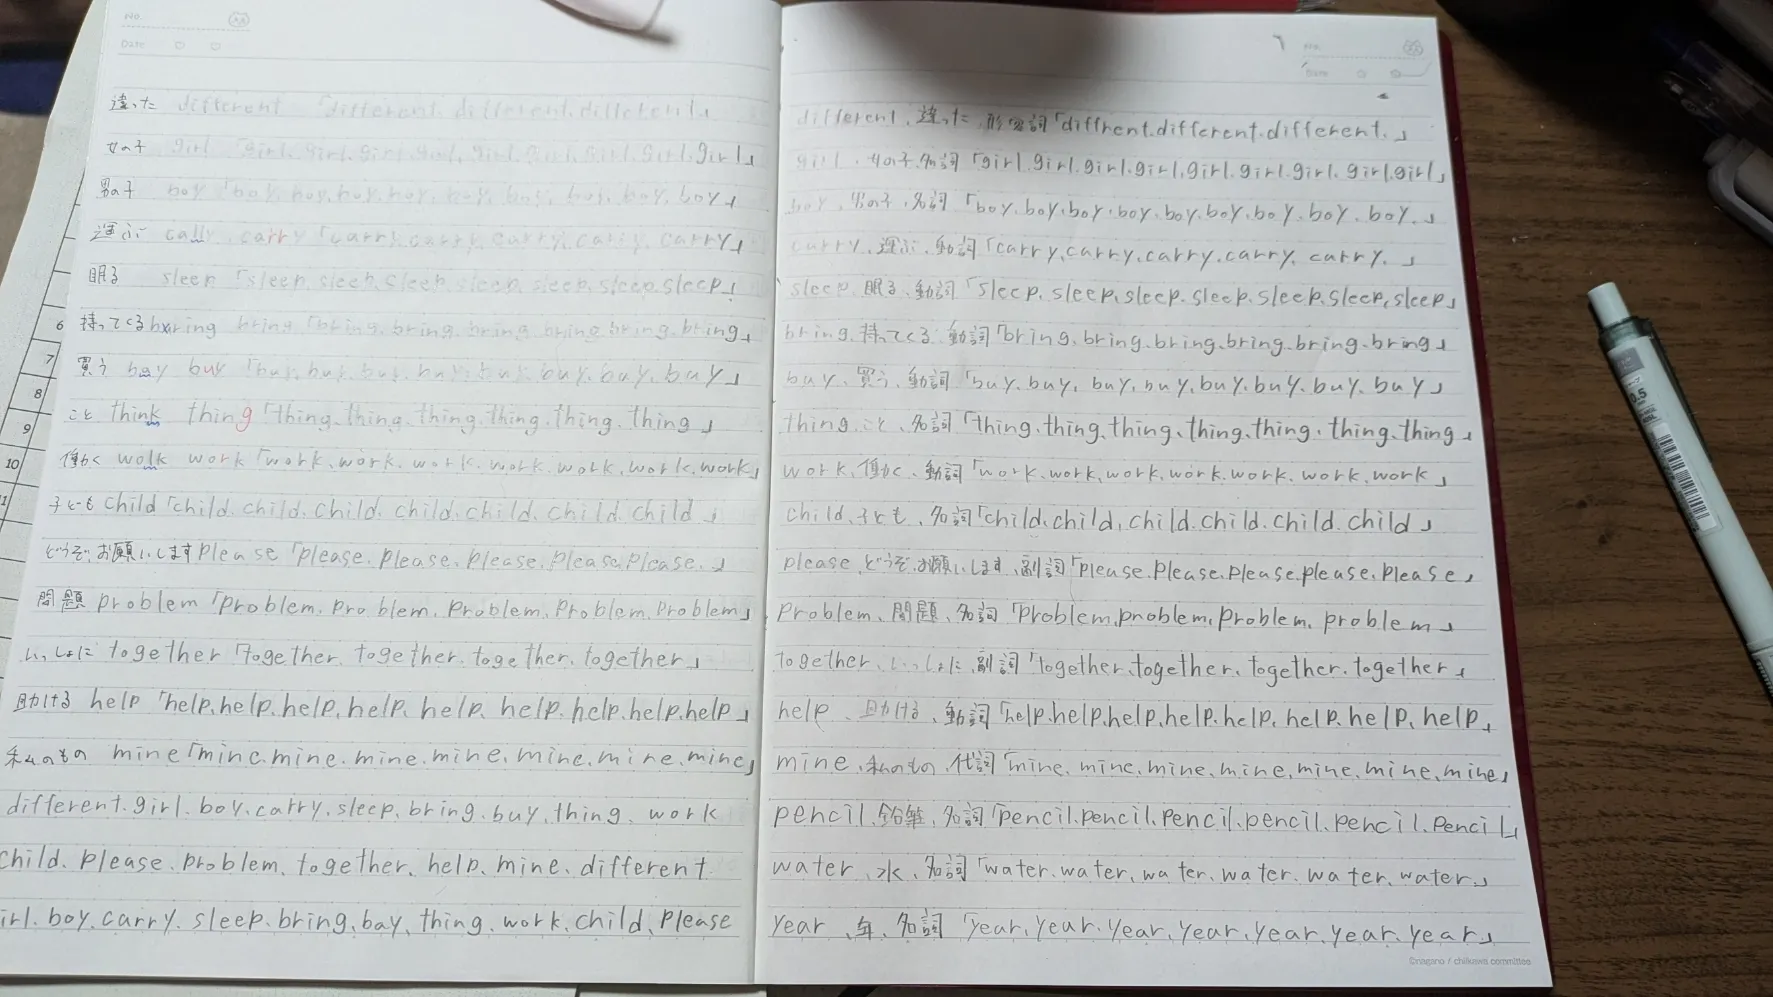 No.
Date
違った different 「different. different. different.」
女の子 girl 「girl. girl. girl. girl. girl. girl. girl. girl. girl」
男の子 boy 「boy. boy. boy. boy. boy. boy. boy. boy. boy」
運ぶ cally. carry 「carry. carry. carry. carry. carry」
眠る sleep 「sleep. sleep. sleep. sleep. sleep. sleep. sleep」
6 持ってくる bring 「bring. bring. bring. bring. bring. bring」
7 買う bay buy 「buy. buy. buy. buy. buy. buy. buy. buy」
8
9 こと think thing 「thing. thing. thing. thing. thing. thing」
10 働く wolk work 「work. work. work. work. work. work. work」
子ども child 「child. child. child. child. child. child. child」
どうぞ、お願いします please 「please. please. please. please. please.」
問題 problem 「problem. problem. problem. problem. problem」
いっしょに together 「together. together. together. together」
助ける help 「help. help. help. help. help. help. help. help. help」
私のもの mine 「mine. mine. mine. mine. mine. mine. mine」
different. girl. boy. carry. sleep. bring. buy. thing. work
child. please. problem. together. help. mine. different
irl. boy. carry. sleep. bring. bay. thing. work. child. please
No.
Date
different、違った、形容詞「diffrent. different. different.」
girl、女の子、名詞「girl. girl. girl. girl. girl. girl. girl. girl. girl」
boy、男の子、名詞「boy. boy. boy. boy. boy. boy. boy. boy. boy.」
carry、運ぶ、動詞「carry. carry. carry. carry. carry.」
sleep、眠る、動詞「sleep. sleep. sleep. sleep. sleep. sleep. sleep」
bring、持ってくる、動詞「bring. bring. bring. bring. bring. bring」
buy、買う、動詞「buy. buy. buy. buy. buy. buy. buy. buy」
thing、こと、名詞「thing. thing. thing. thing. thing. thing. thing」
work、働く、動詞「work. work. work. work. work. work. work」
child、子ども、名詞「child. child. child. child. child. child」
please、どうぞ、お願いします、副詞「please. please. please. please. please」
problem、問題、名詞「problem. problem. problem. problem」
together、いっしょに、副詞「together. together. together. together」
help、助ける、動詞「help. help. help. help. help. help. help. help」
mine、私のもの、代詞「mine. mine. mine. mine. mine. mine. mine」
pencil、鉛筆、名詞「pencil. pencil. pencil. pencil. pencil. pencil」
water、水、名詞「water. water. water. water. water. water.」
year、年、名詞「year. year. year. year. year. year. year」
©nagano / chiikawa committee
0.5